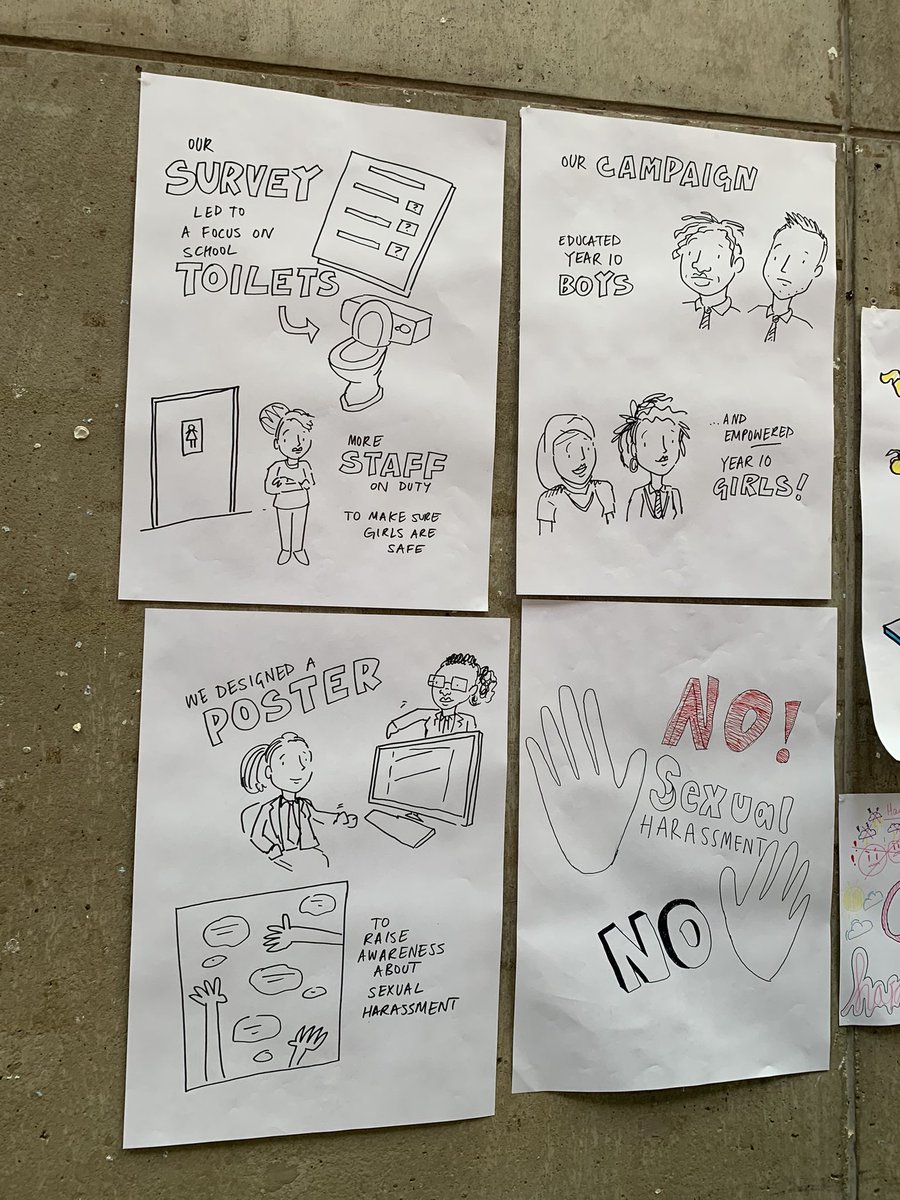 OUR
SURVEY
LED TO
A FOCUS ON
SCHOOL
TOILETS
?
?
?
MORE
STAFF
ON DUTY
TO MAKE SURE
GIRLS ARE
SAFE
OUR CAMPAIGN
EDUCATED
YEAR 10
BOYS
...AND
EMPOWERED
YEAR 10
GIRLS!
WE DESIGNED A
POSTER
TO
RAISE
AWARENESS
ABOUT
SEXUAL
HARASSMENT
NO!
Sexual
HARASSMENT
NO